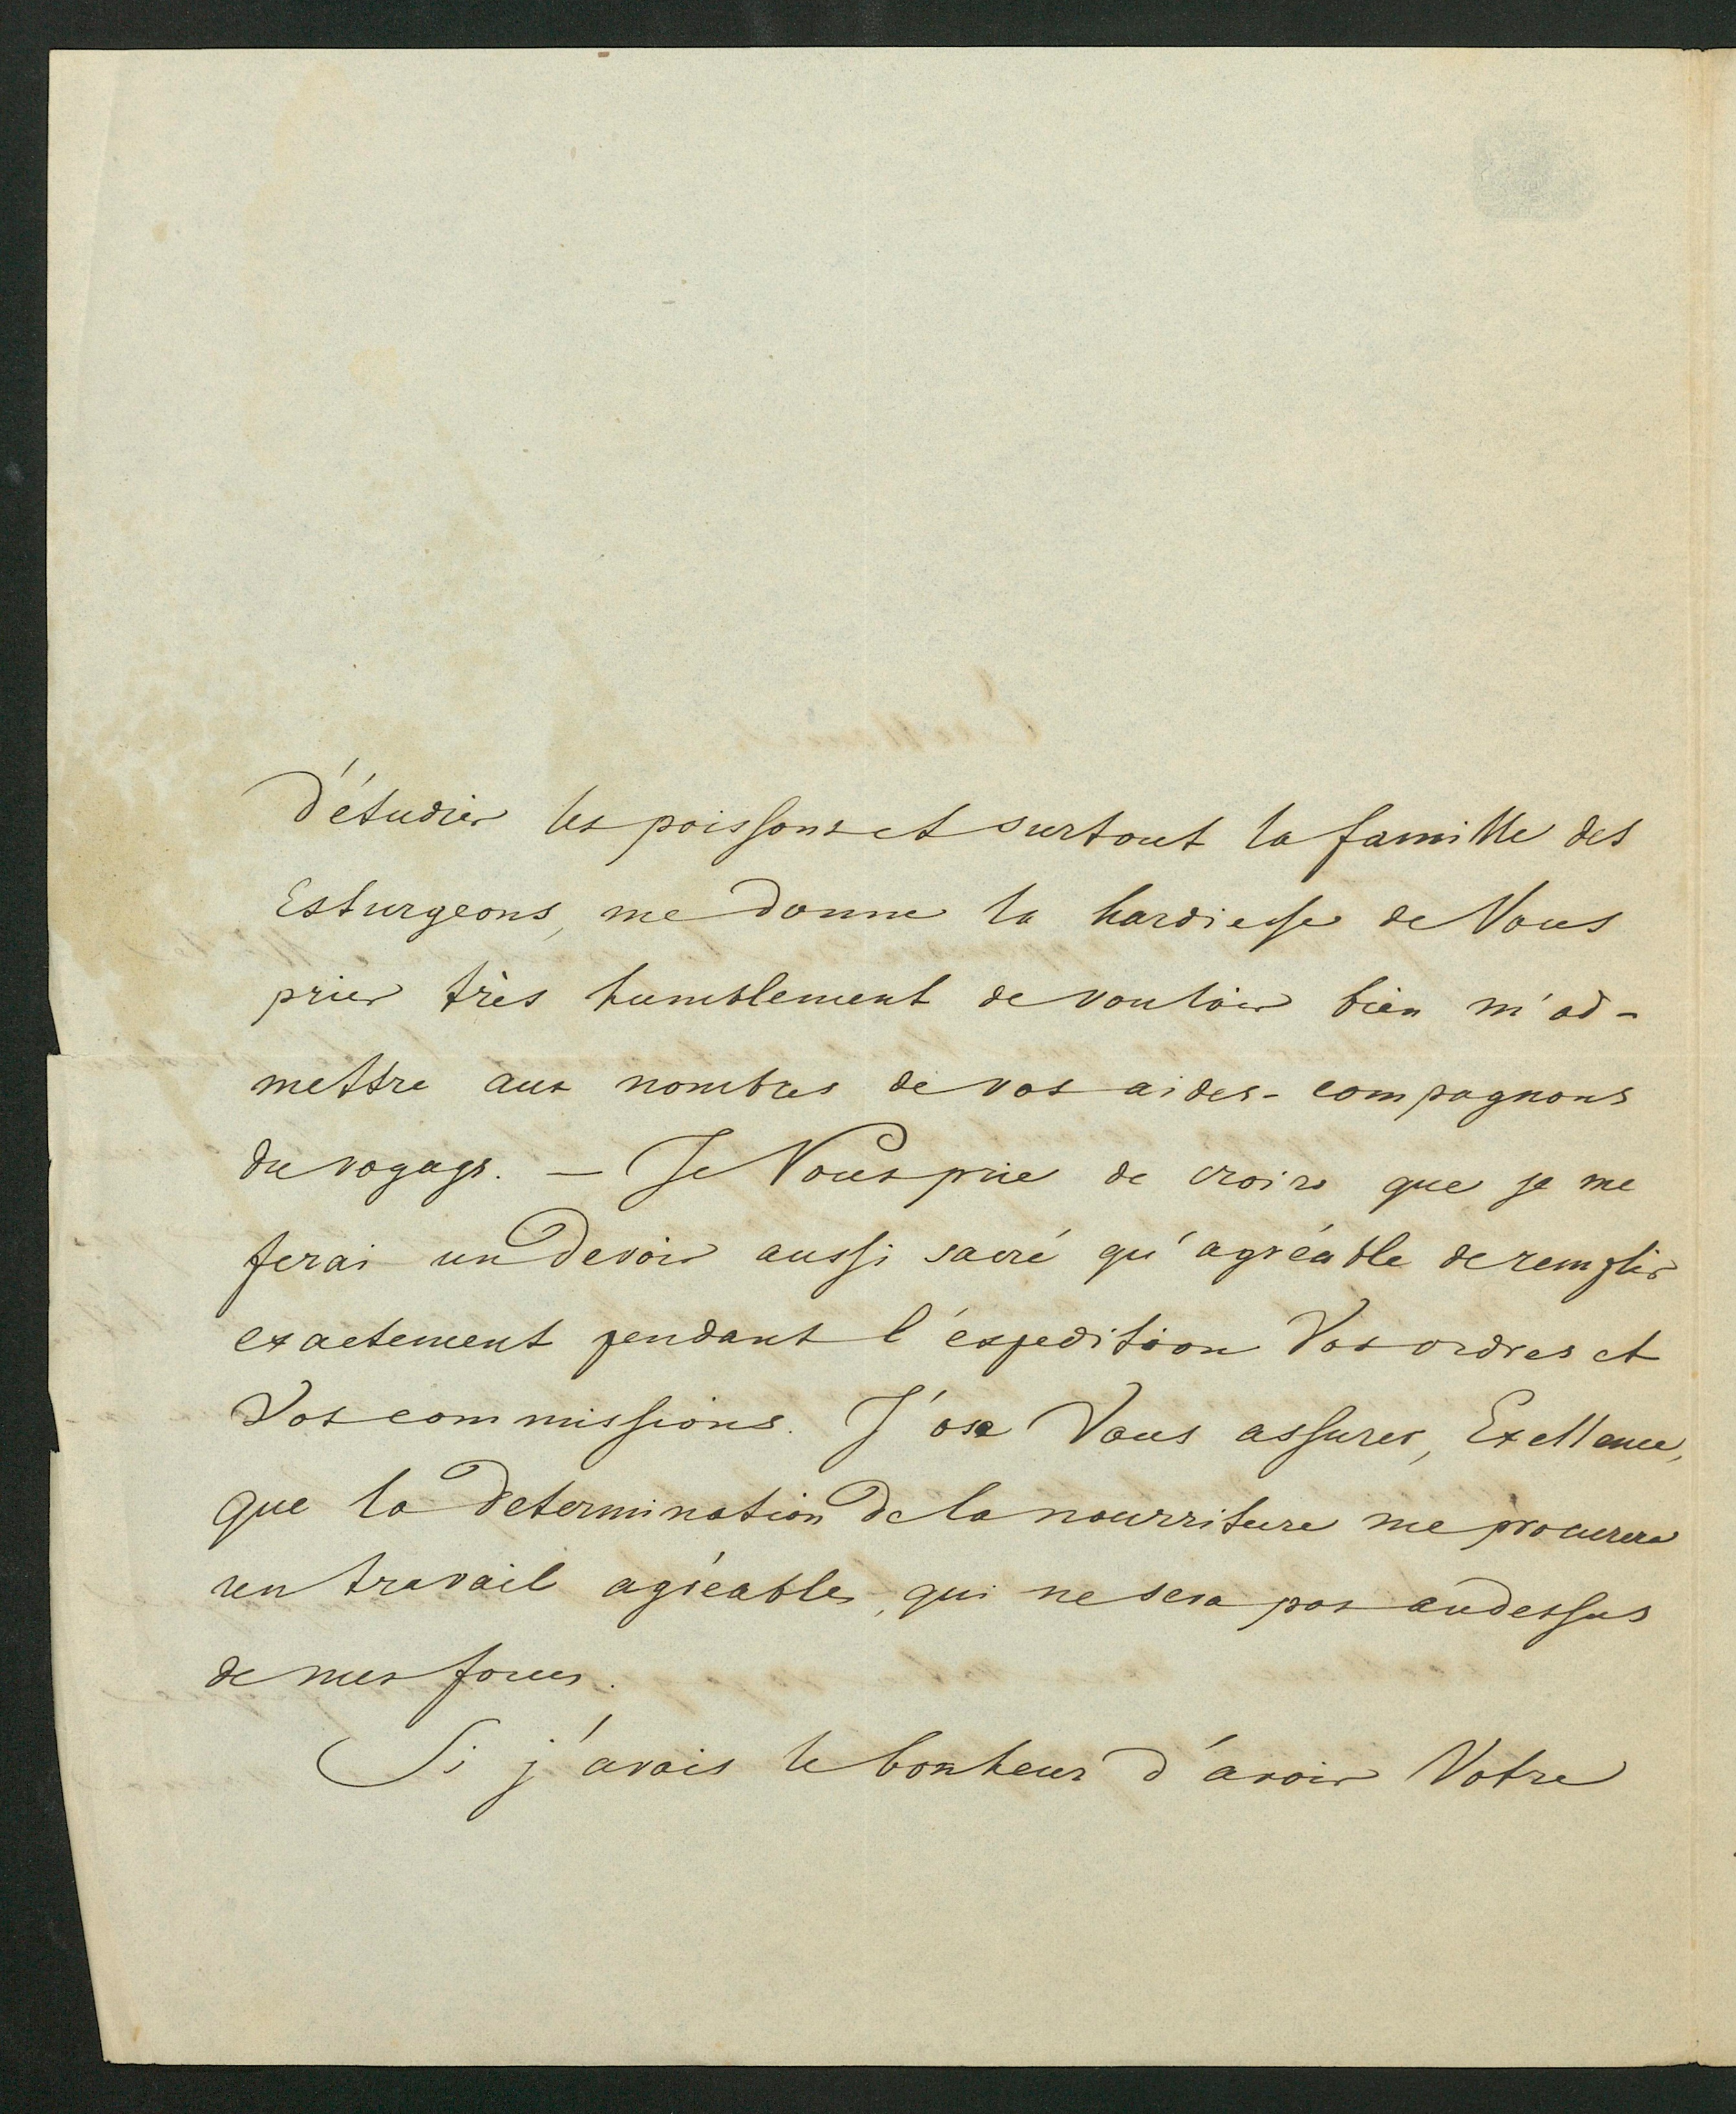 d'étudier les poissons et surtout la famille des
Esturgeons, me donne la hardiesse de Vous
prier très humblement de vouloir bien m'ad-
mettre aux nombres de vos aides-compagnons
du voyage. — Je Vous prie de croire que je me
ferai un devoir aussi sacré qu'agréable de remplir
exactement pendant l'éxpedition Vos ordres et
Vos commissions. J'ose Vous assurer, Exellence,
que la determination de la nourriture me procurera
un travail agréable, qui ne sera pas audessus
de mes forces.
Si j'avais le bonheur d'avoir Votre